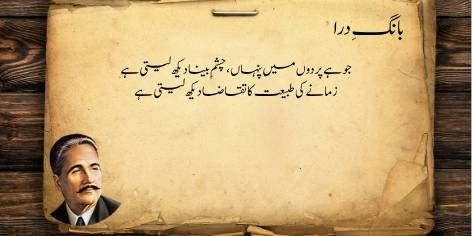 بانگِ درا
جو ہے پردوں میں پنہاں، چشمِ بینا دیکھ لیتی ہے
زمانے کی طبیعت کا تقاضا دیکھ لیتی ہے